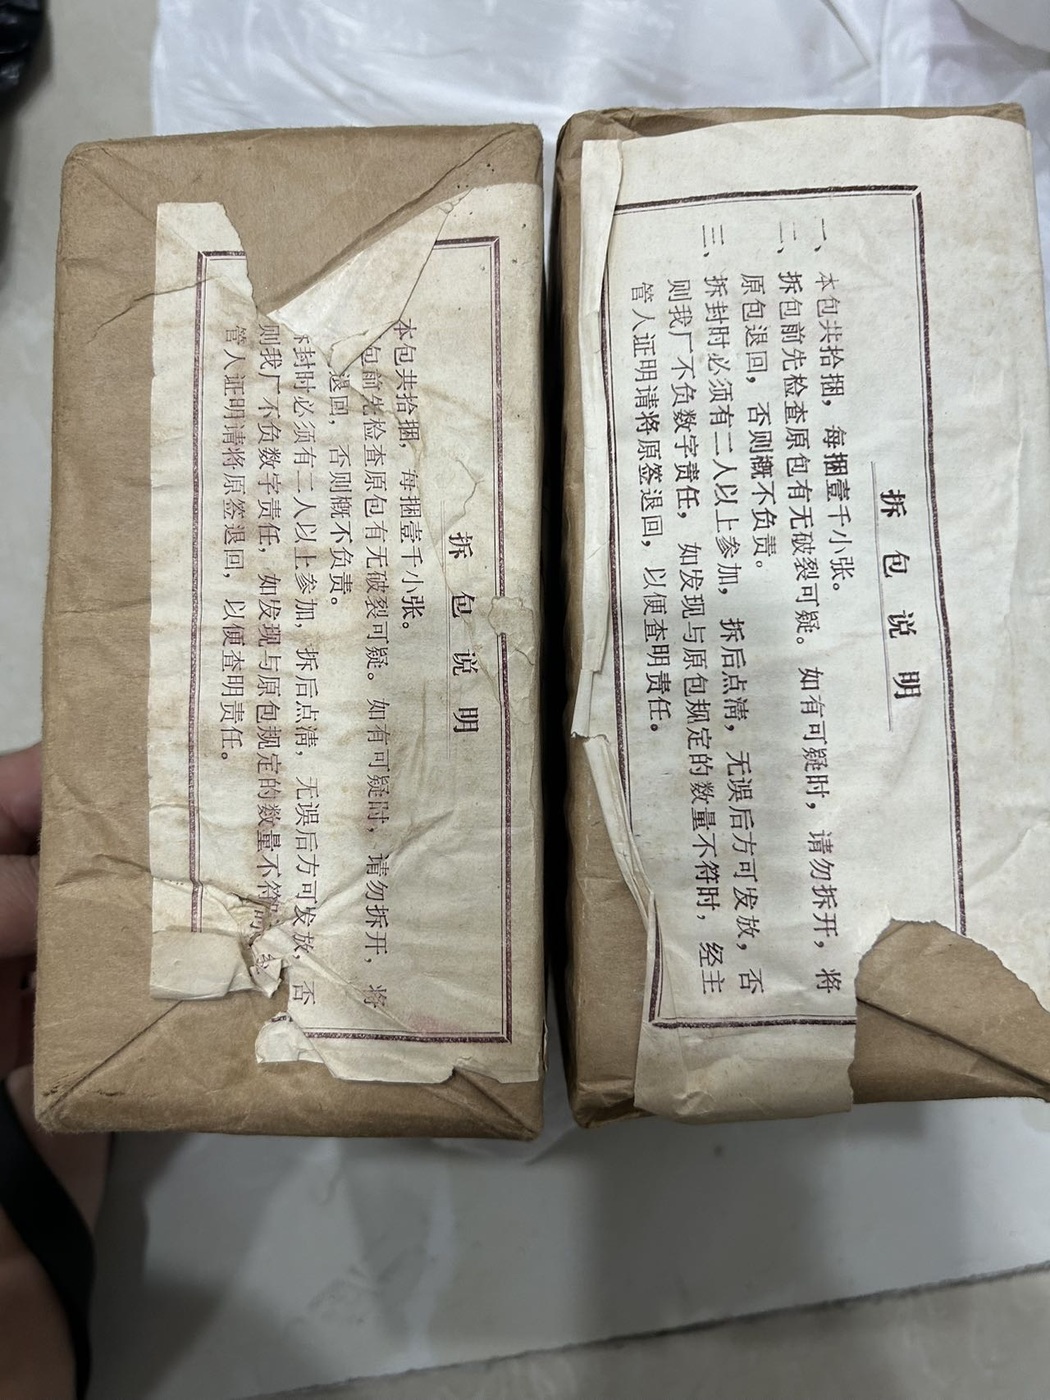 拆包说明
本包共拾捆，每捆壹千小张。
包前先检查原包有无破裂可疑。如有可疑时，请勿拆开，将
退回，否则概不负责。
封时必须有二人以上参加，拆后点清，无误后方可发放，否
则我厂不负数字责任，如发现与原包规定的数量不符时，
管人证明请将原签退回，以便查明责任。
拆包说明
一、本包共拾捆，每捆壹千小张。
二、拆包前先检查原包有无破裂可疑。如有可疑时，请勿拆开，将
原包退回，否则概不负责。
三、拆封时必须有二人以上参加，拆后点清，无误后方可发放，否
则我厂不负数字责任，如发现与原包规定的数量不符时，经主
管人证明请将原签退回，以便查明责任。